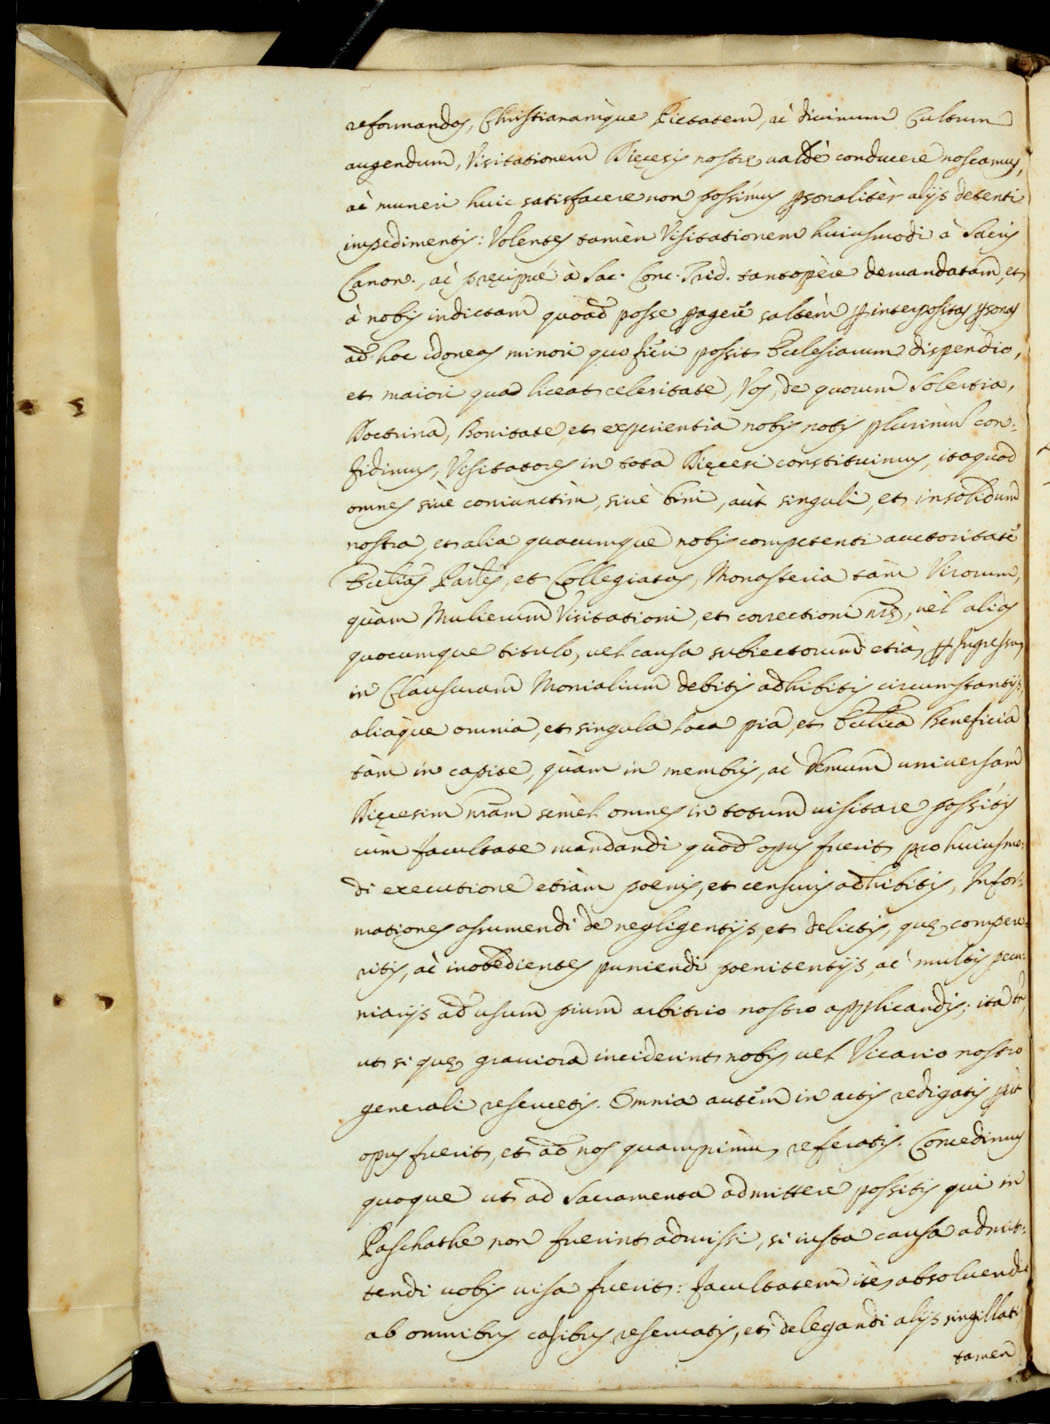 reformandos, Christianamque Pietatem, ac divinum Cultum
augendum, Visitationem Dięcesis nostrę valdè conducere noscamus,
ac muneri huic satisfacere non possimus psonalitèr alijs detenti
impedimentis: Volentes tamèn Visitationem huiusmodi à Sacris
Canon., ac pręcipuè à Sac. Conc. Trid. tantopère demandatam, et
à nobis indictam quoad posse pagere saltèm p interpositas psonas
ad hoc idoneas minori quo fieri possit Ecclesiarum dispendio,
et maiori qua liceat celeritate, Vos, de quorum Solertia,
Doctrina, Bonitate, et experientia nobis notis plurimum con-
fidimus, Visitatores in tota Dięcesi constituimus, ita quod
omnes sive coniunctim, sivè bini, aùt singuli, et insolidum
nostra, et alia quacumque nobis competenti auctoritate
Ecclias Parles, et Collegiatas, Monasteria tàm Virorum,
quàm Mulierum Visitationi, et correctioni nrę, vèl alias
quocumque titulo, vel causa subiectorum etià p Ingressus
in Clausuram Monialium debitis adhibitis circumstantijs,
aliaque omnia, et singula loca pia, et Ecclica Beneficia
tàm in capite, quàm in membris, ac demum universam
Dięcesim nram semèl omnes in totum visitare possitis
cùm facultate mandandi quod opus fuerit pro huiusmo-
di executione etiàm poenis, et censuris adhibitis, Infor-
mationes assumendi de negligentijs, et delictis, quę compere-
ritis, ac inobedientes puniendi poenitentijs, ac multis pecu-
niarijs ad usum pium arbitrio nostro applicandis; ita tn,
ut si quę graviora inciderint nobis, vel Vicario nostro
generali reservetis. Omnia autem in actis redigatis prùt
opus fuerit, et ad nos quamprimùm referatis. Concedimus
quoque ut ad Sacramenta admittere possitis qui in
Paschathe non fuerint admissi, si iusta causa admit-
tendi vobis visa fuerit: facultatem itè absolvendi
ab omnibus casibus reservatis, et delegandi alijs singillati
tamen